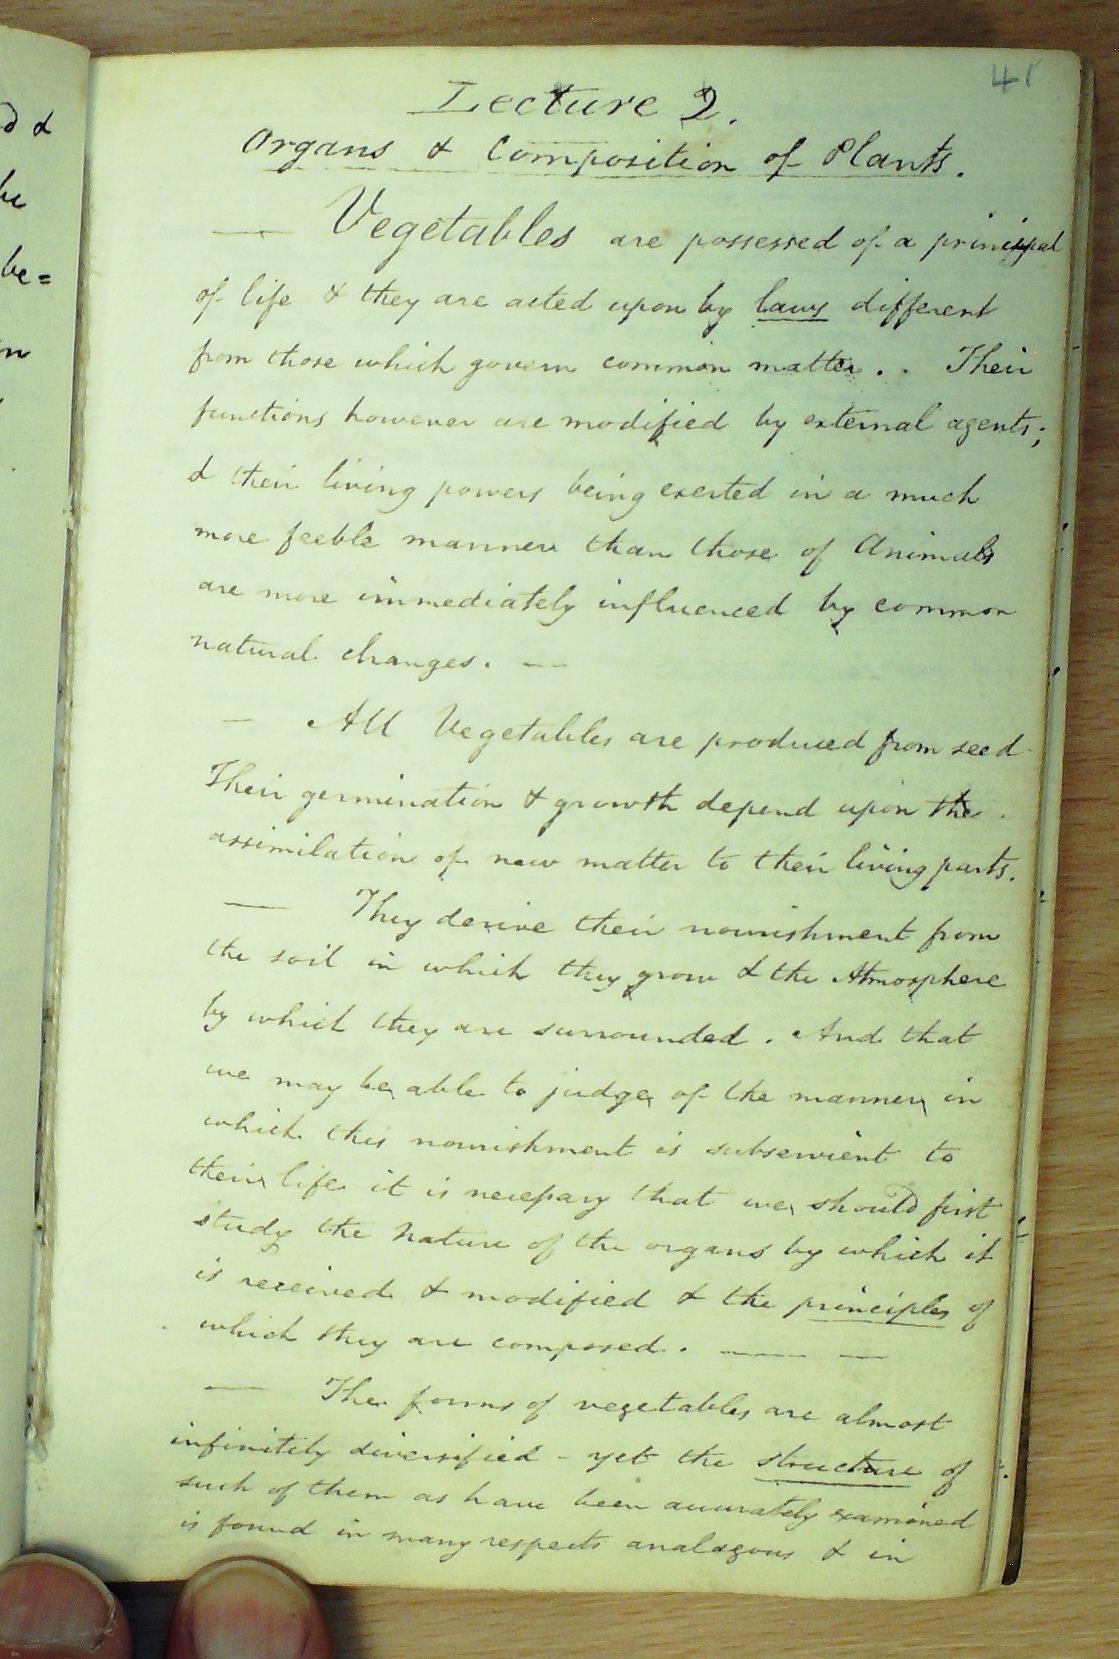 41
Lecture 2.
Organs & Composition of Plants.
— Vegetables are possessed of a principal
of life & they are acted upon by laws different
from those which govern common matter. . Their
functions however are modified by external agents;
& their living powers being exerted in a much
more feeble manner than those of Animals
are more immediately influenced by common
natural changes. —
— All Vegetables are produced from seed
Their germination & growth depend upon the
assimilation of new matter to their living parts.
— They derive their nourishment from
the soil in which they grow & the Atmosphere
by which they are surrounded. And that
we may be able to judge of the manner in
which this nourishment is subservient to
their life it is necessary that we should first
study the Nature of the organs by which it
is received & modified & the principles of
which they are composed. — —
— The forms of vegetables are almost
infinitely diversified - yet the structure of
such of them as have been accurately examined
is found in many respects analagous & in
d &
be
be=